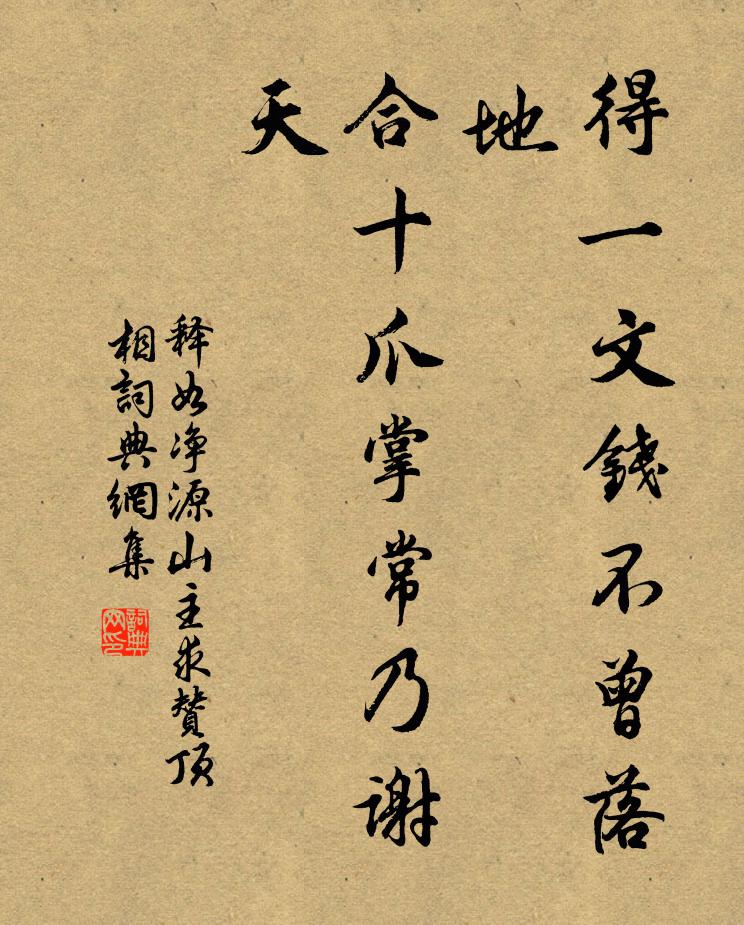 得一文錢不曾落
地
合十爪掌常乃謝
天
释如净源山主求赞顶
相詞典網集
詞典
网印